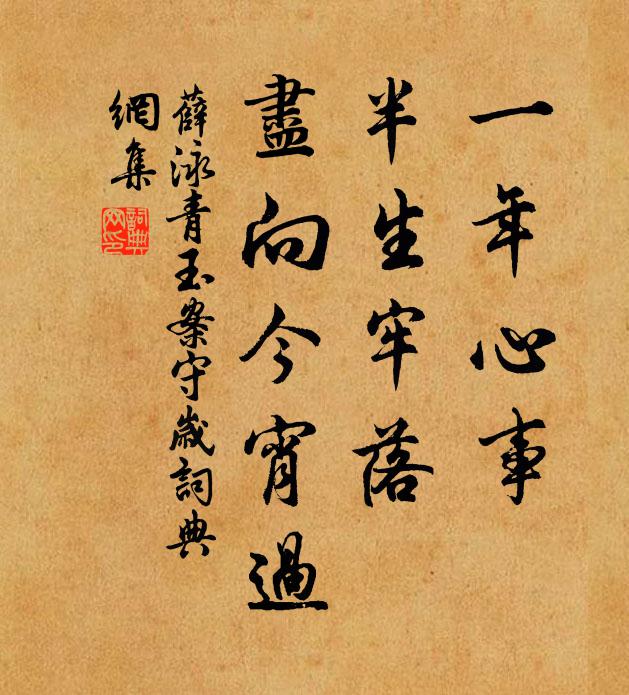 一年心事
半生牢落
盡向今宵過
薛泳青玉案守歲詞典
網集
詞典網印